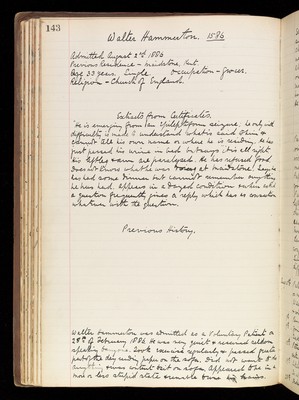 143
Walter Hammerton. 1586
Admitted August 2nd 1886
Previous Residence - Maidstone, Kent.
Age 33 years. Single Occupation - Grocer.
Religion - Church of England
Extracts from Certificates.
"He is emerging from an Epileptiform seizure, is only with
difficulty made to understand what is said to him &
cannot tell his own name or where he is residing, he has
just passed his urine in bed & says it is all right
his legs & arms are paralysed. He has refused food
does not know what he was doing at Maidstone. Says he
has had some dinner but cannot remember anything
he has had, appears in a dazed condition & when asked
a question frequently gives a reply which has no connection
whatever with the question.
Previous History.
Walter Hammerton was admitted as a Voluntary Patient on
28th of February 1886. He was very quiet & reserved seldom
speaking to anyone. Took exercise regularly & passed quite
part of the day reading papers on the sofa. Did not want to do
anything & was content to sit on sofa. Appeared to be in a
more or less stupid state & unable to use his brains.